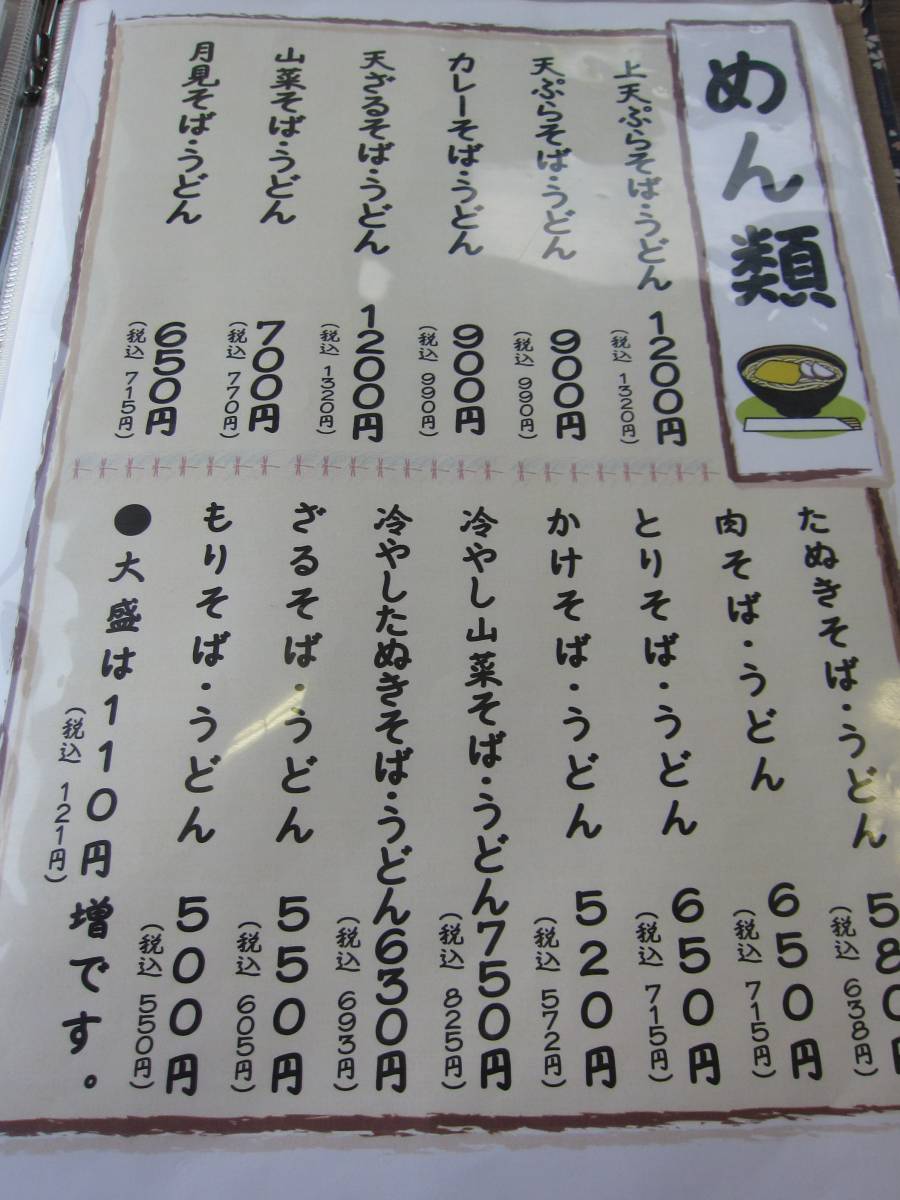 めん類
上天ぷらそば・うどん 1200円
(税込 1320円)
天ぷらそば・うどん 900円
(税込 990円)
カレーそば・うどん 900円
(税込 990円)
天ざるそば・うどん 1200円
(税込 1320円)
山菜そば・うどん 700円
(税込 770円)
月見そば・うどん 650円
(税込 715円)
たぬきそば・うどん 580円
(税込 638円)
肉そば・うどん 650円
(税込 715円)
とりそば・うどん 650円
(税込 715円)
かけそば・うどん 520円
(税込 572円)
冷やし山菜そば・うどん 750円
(税込 825円)
冷やしたぬきそば・うどん 630円
(税込 693円)
ざるそば・うどん 550円
(税込 605円)
もりそば・うどん 500円
(税込 550円)
●大盛は110円増です。
(税込 121円)